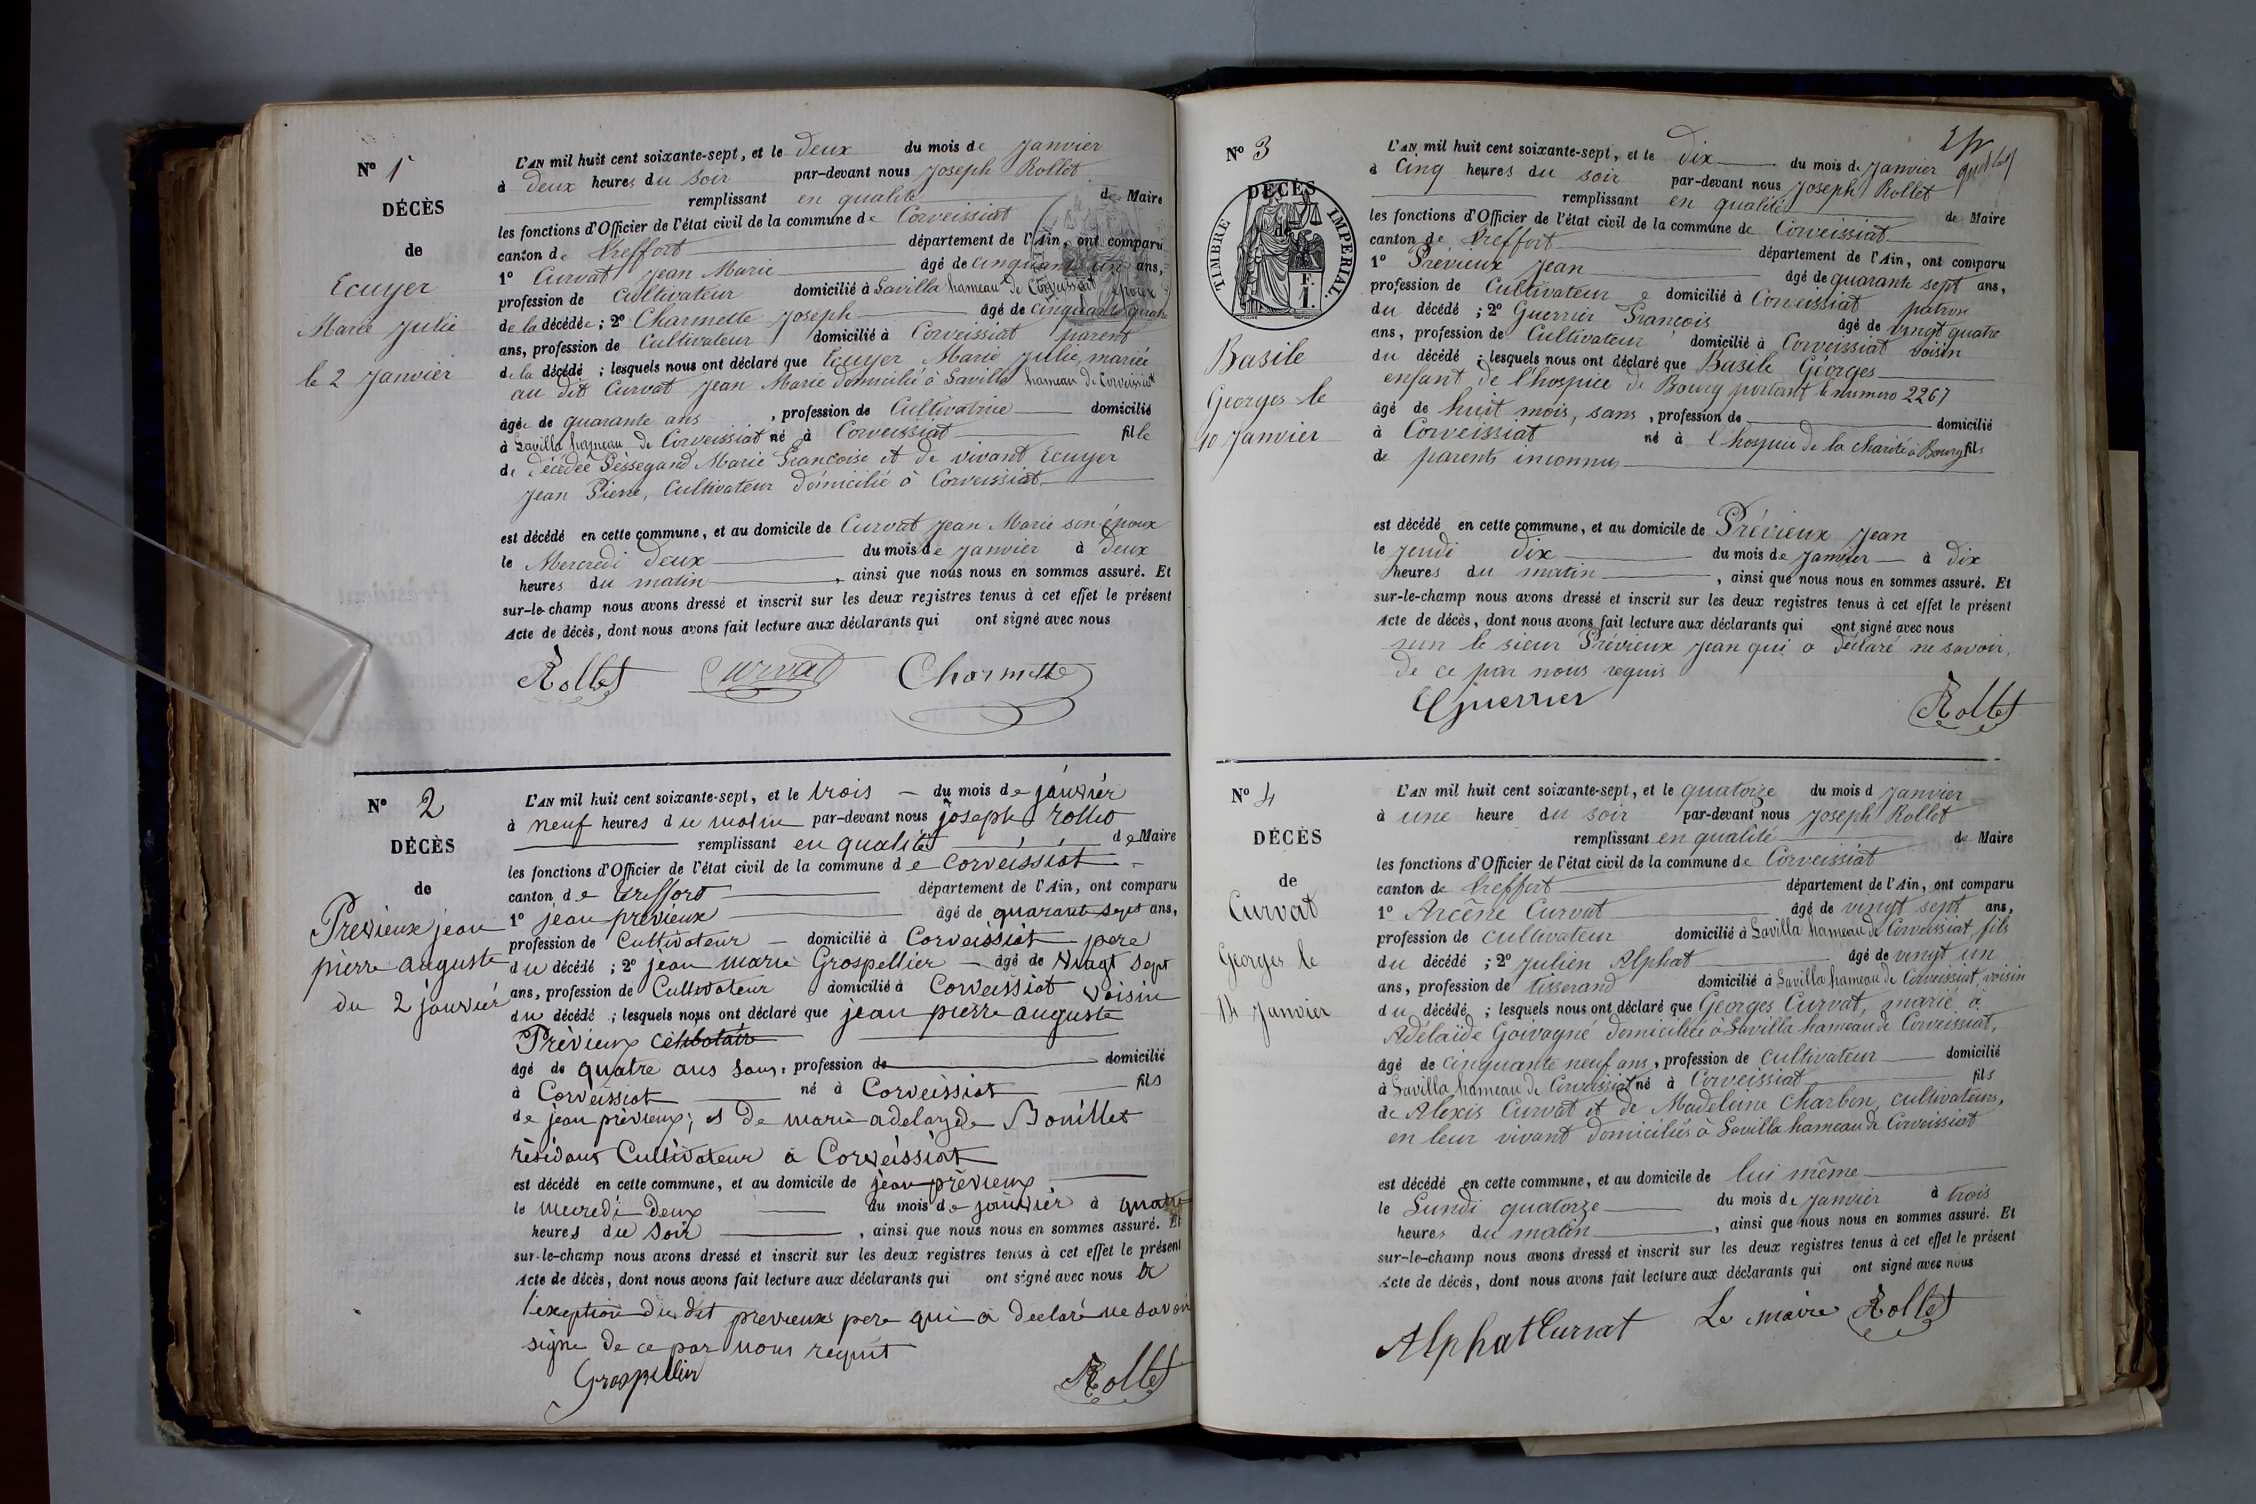 Nº 1
DÉCÈS
de
Ecuyer
Marie Julie
le 2 Janvier
L'AN mil huit cent soixante-sept, et le deux du mois de Janvier
à deux heures du soir par-devant nous Joseph Rollet
remplissant en qualité de Maire
les fonctions d'Officier de l'état civil de la commune de Corveissiat
canton de Treffort département de l'Ain, ont comparu
1º Curvat Jean Marie âgé de cinquante un ans,
profession de Cultivateur domicilié à Savilla hameau de Corveissiat époux
de la décédée ; 2º Charmette Joseph âgé de cinquante quatre
ans, profession de Cultivateur domicilié à Corveissiat parent
de la décédé ; lesquels nous ont déclaré que Ecuyer Marie Julie, mariée
au dit Curvat Jean Marie domicilié à Savilla hameau de Corveissiat
âgée de quarante ans, profession de Cultivatrice domicilié
à Savilla hameau de Corveissiat né à Corveissiat fille
de décédée Marie Françoise et de vivant Ecuyer
Jean Pierre, Cultivateur domicilié à Corveissiat
est décédé en cette commune, et au domicile de Curvat Jean Marie son époux
le Mercredi deux du mois de Janvier à deux
heures du matin, ainsi que nous nous en sommes assuré. Et
sur-le-champ nous avons dressé et inscrit sur les deux registres tenus à cet effet le présent
Acte de décès, dont nous avons fait lecture aux déclarants qui ont signé avec nous
Rollet Curvat Charmette
Nº 2
DÉCÈS
de
Prévieux jean
pierre auguste
du 2 janvier
L'AN mil huit cent soixante-sept, et le trois du mois de janvier
à neuf heures du matin par-devant nous joseph rollet
remplissant en qualité de Maire
les fonctions d'Officier de l'état civil de la commune de Corveissiat
canton de treffort département de l'Ain, ont comparu
1º jean prévieux âgé de quarante sept ans,
profession de Cultivateur domicilié à Corveissiat pere
du décédé ; 2º jean marie Grospellier âgé de vingt sept
ans, profession de Cultivateur domicilié à Corveissiat voisin
du décédé ; lesquels nous ont déclaré que jean pierre auguste
Prévieux célibataire
âgé de quatre ans sans, profession de domicilié
à Corveissiat né à Corveissiat fils
de jean prévieux, et de marie adelayde Bouillet
résidant Cultivateur à Corveissiat
est décédé en cette commune, et au domicile de jean prévieux
le mecredi deux du mois de janvier à quatre
heures du soir, ainsi que nous nous en sommes assuré. Et
sur-le-champ nous avons dressé et inscrit sur les deux registres tenus à cet effet le présent
Acte de décès, dont nous avons fait lecture aux déclarants qui ont signé avec nous à
l'exeption du dit previeux pere qui a declaré ne savoir
signe de ce par nous requit
Grospellier Rollet
Nº 3
DÉCÈS
de
TIMBRE IMPERIAL.
F.
1.
Basile
Georges le
10 Janvier
L'AN mil huit cent soixante-sept, et le dix du mois de Janvier
à Cinq heures du soir par-devant nous Joseph Rollet
remplissant en qualité de Maire
les fonctions d'Officier de l'état civil de la commune de Corveissiat
canton de Treffort département de l'Ain, ont comparu
1º Prévieux Jean âgé de quarante sept ans,
profession de Cultivateur domicilié à Corveissiat patron
du décédé ; 2º Guerrier François âgé de vingt quatre
ans, profession de Cultivateur domicilié à Corveissiat voisin
du décédé ; lesquels nous ont déclaré que Basile Georges
enfant de l'hospice de Bourg portant le numero 2267
âgé de huit mois, sans, profession de domicilié
à Corveissiat né à l'hospice de la charité à Bourg fils
de parents inconnus
est décédé en cette commune, et au domicile de Prévieux Jean
le Jeudi dix du mois de Janvier à dix
heures du matin, ainsi que nous nous en sommes assuré. Et
sur-le-champ nous avons dressé et inscrit sur les deux registres tenus à cet effet le présent
Acte de décès, dont nous avons fait lecture aux déclarants qui ont signé avec nous
non le sieur Prévieux Jean qui a déclaré ne savoir,
de ce par nous requis
Guerrier Rollet
Nº 4
DÉCÈS
de
Curvat
Georges le
14 Janvier
L'AN mil huit cent soixante-sept, et le quatorze du mois d Janvier
à une heure du soir par-devant nous Joseph Rollet
remplissant en qualité de Maire
les fonctions d'Officier de l'état civil de la commune de Corveissiat
canton de Treffort département de l'Ain, ont comparu
1º Arcêne Curvat âgé de vingt sept ans,
profession de cultivateur domicilié à Savilla hameau de Corveissiat fils
du décédé ; 2º Julien Alphat âgé de vingt un
ans, profession de tisserand domicilié à Savilla hameau de Corveissiat voisin
du décédé ; lesquels nous ont déclaré que Georges Curvat, marié à
Adélaïde Goivagné domiciliée à Savilla hameau de Corveissiat,
âgé de cinquante neuf ans, profession de cultivateur domicilié
à Savilla hameau de Corveissiat né à Corveissiat fils
de Alexis Curvat et de Madeleine Charbon, cultivateurs,
en leur vivant domiciliés à Savilla hameau de Corveissiat
est décédé en cette commune, et au domicile de lui même
le Lundi quatorze du mois de Janvier à trois
heures du matin, ainsi que nous nous en sommes assuré. Et
sur-le-champ nous avons dressé et inscrit sur les deux registres tenus à cet effet le présent
Acte de décès, dont nous avons fait lecture aux déclarants qui ont signé avec nous
Alphat Curvat Le maire Rollet